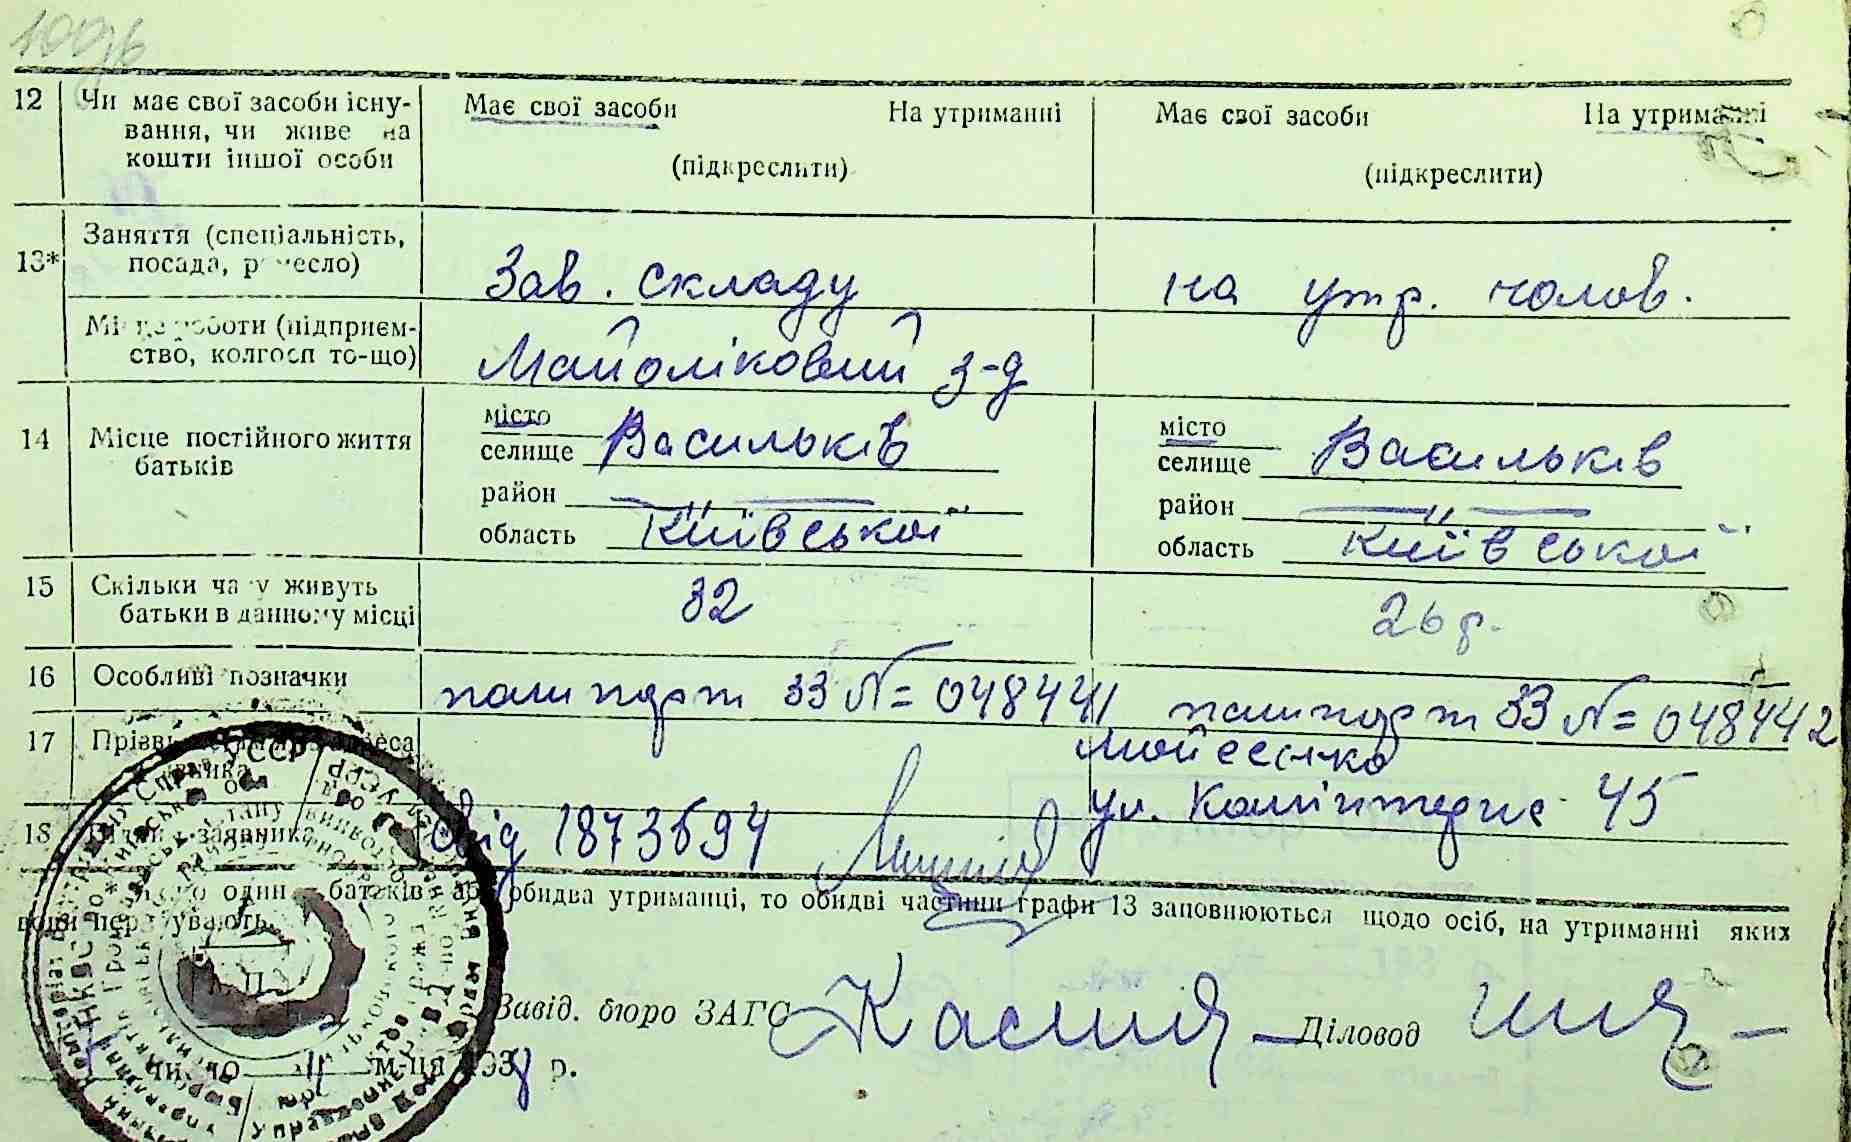 12 Чи має свої засоби існу- Має свої засоби На утриманні Має свої засоби На утриманні
вання, чи живе на
кошти іншої особи (підкреслити) (підкреслити)
13* Заняття (спеціальність,
посада, ремесло) Зав. складу на утр. чолов.
Місце роботи (підприєм-
ство, колгосп то-що) Майоліковий з-д
14 Місце постійного життя місто Васильків місто Васильків
батьків селище селище
район район
область Київської область Київської
15 Скільки часу живуть 32 26 р.
батьки в данному місці
16 Особливі позначки пашпорт ЗЗ № 048441 пашпорт ЗЗ № 048442
17 Прізвище адреса Мойсеєнко
ул. Комінтерна 45
18 Підпис заявника Свід 1873594
один батьків або обидва утриманці, то обидві частини графи 13 заповнюються щодо осіб, на утриманні яких
вони перебувають.
Завід. бюро ЗАГС Діловод
число 11 м-ця 193 р.